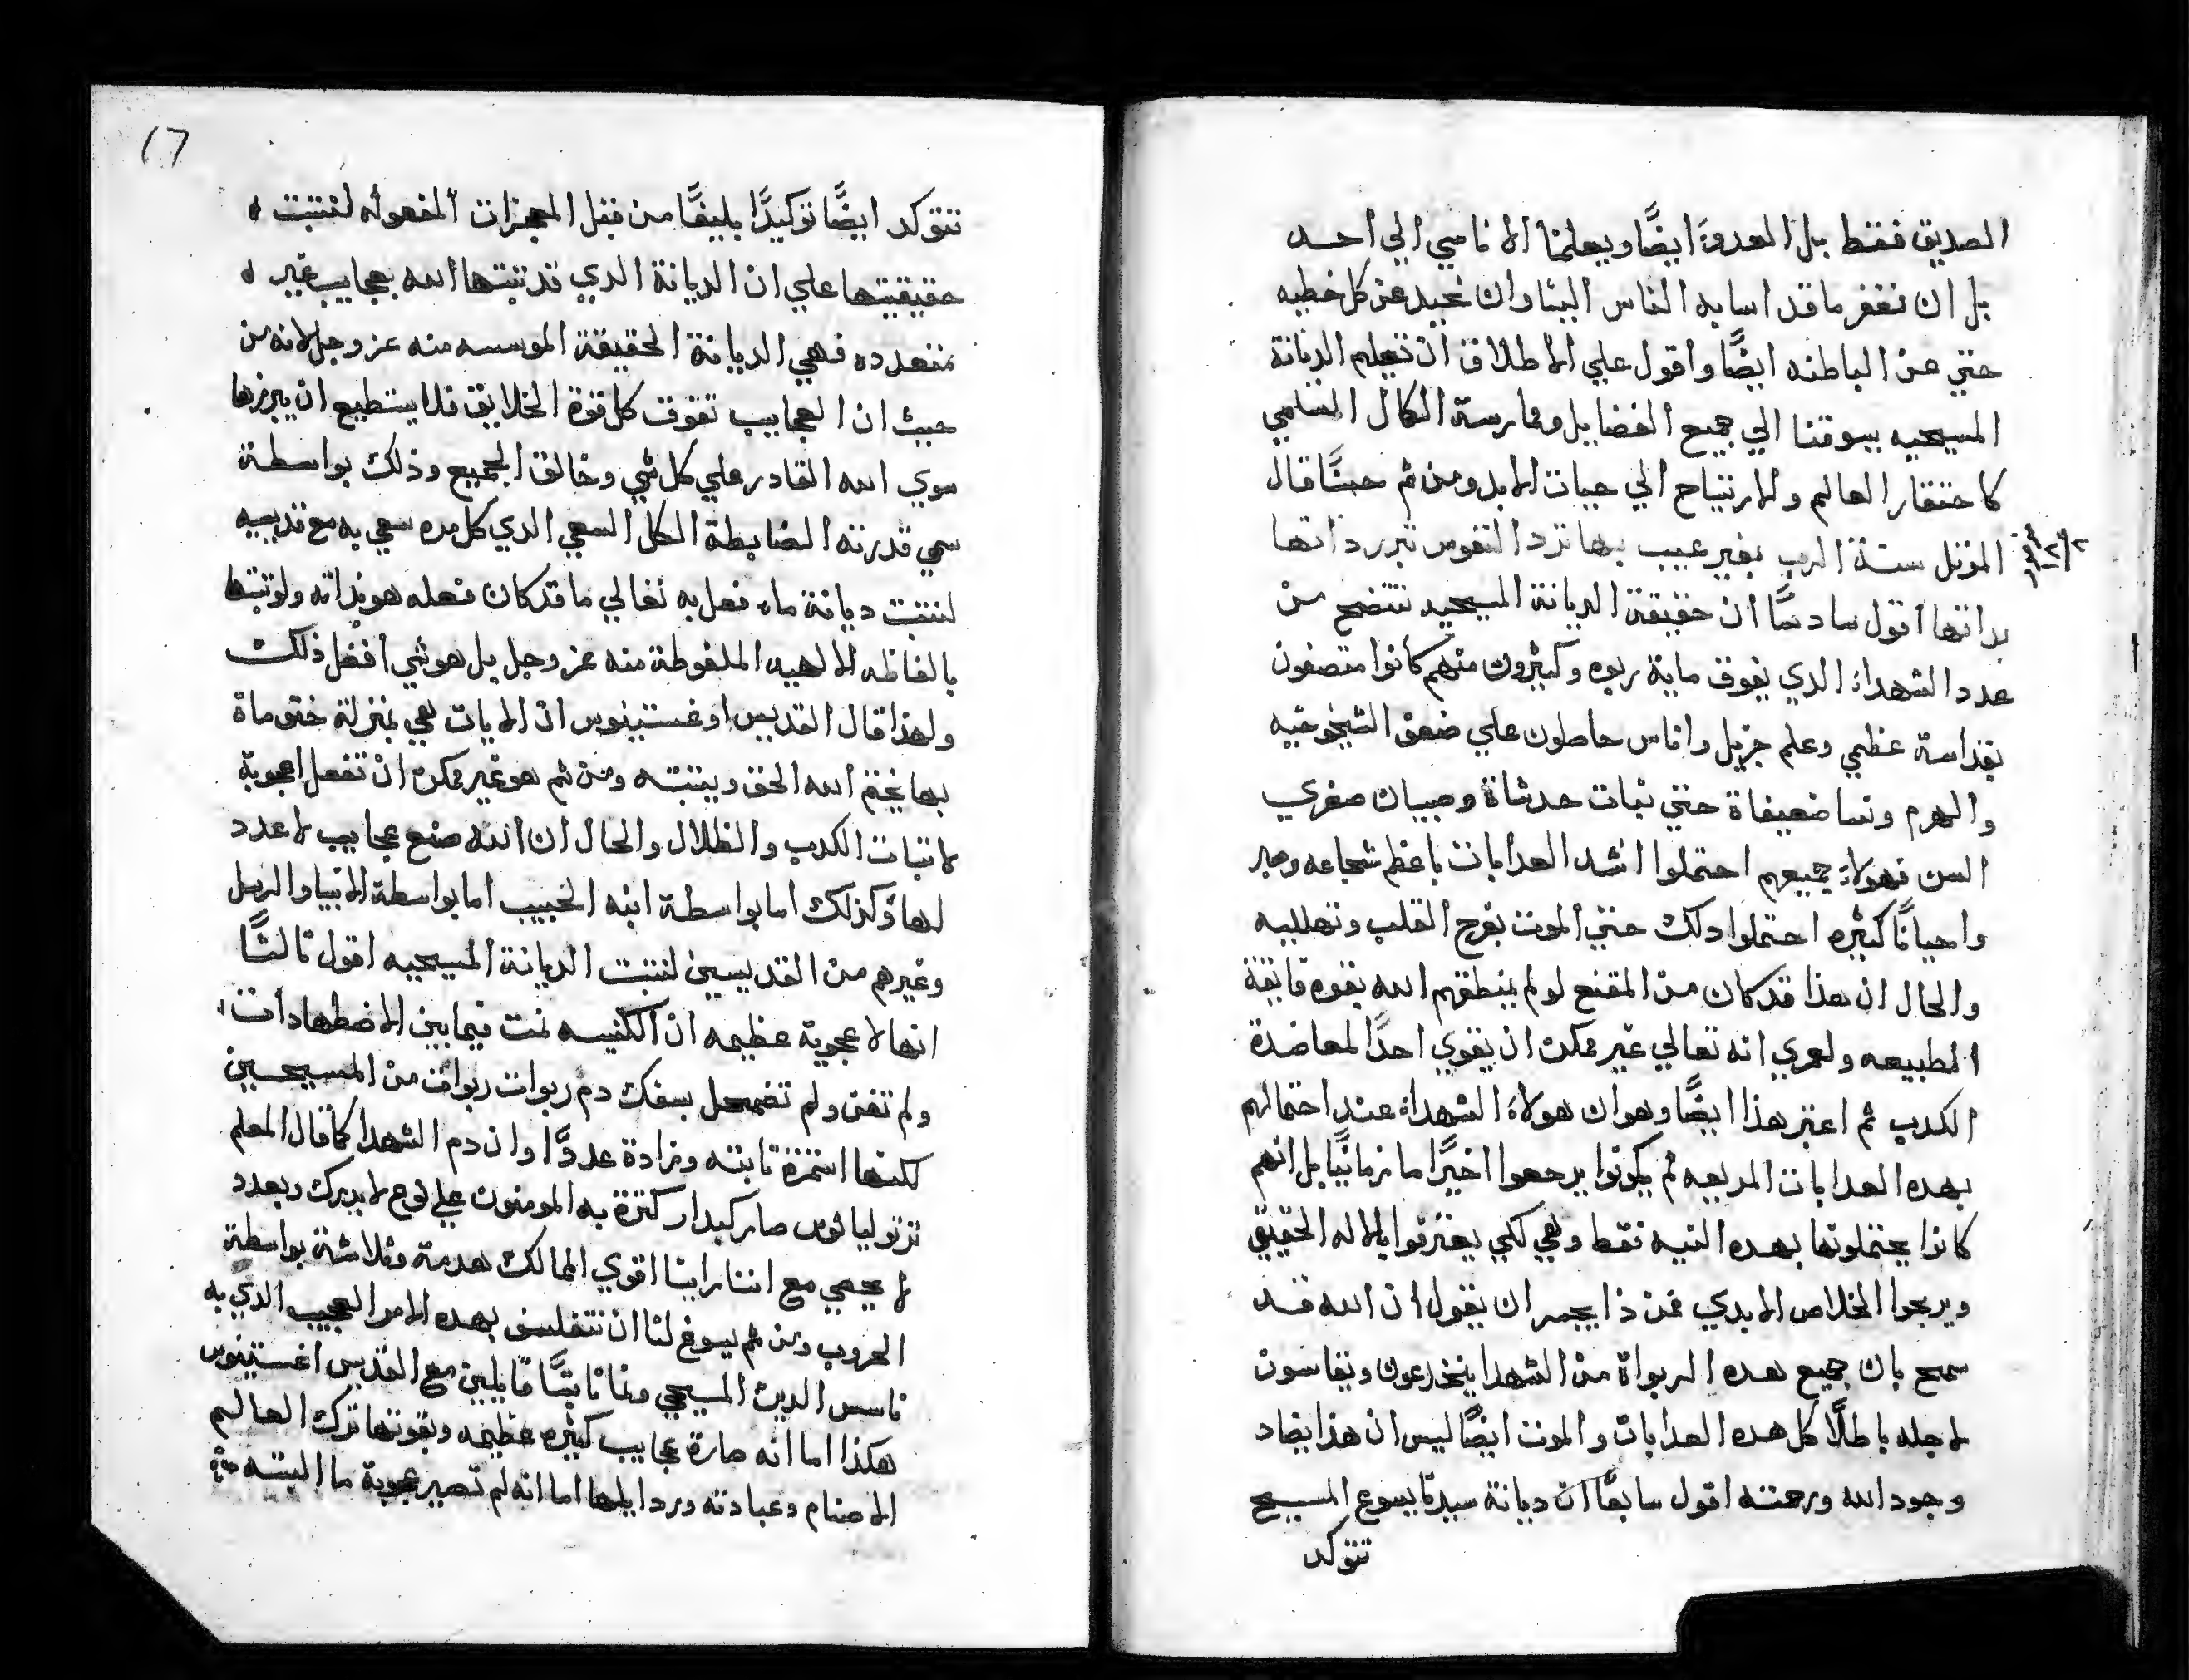 الصديق فقط بل العدوّ ايضًا ويعلمنا الا ناسي الي احد
بل ان نغفر ما قد اسا به الناس الينا وان نحيد عن كل خطيه
حتي عن الباطنه ايضًا واقول علي الاطلاق ان تعليم الديانة
المسيحيه يسوقنا الي جميع الفضايل وممارسة الكمال السامي
كاحتقار العالم والارتياح الي حيات الابد ومن ثم حسنًا قال
المرتل سنة الرب بغير عيب بها ترد النفوس تبرر داتها
بداتها اقول سادسًا ان حقيقة الديانة المسيحيه تتضح من
عدد الشهداء الدي يفوق ماية ربوه وكثيرون منهم كانوا متصفون
بقداسة عظمي وعلم جزيل واناس حاصلون علي ضعف الشيخوخيه
والهرم ونسا ضعيفاة حتي بنات حدثاة وصبيان صغري
السن فهولاء جميعهم احتملوا اشد العدابات باعظم شجاعه وصبر
واحيانًا كثيره احتملوا دلك حتي الموت بفرح القلب وتهليله
والحال ان هذا قد كان من المقنع لو لم يمنطقهم الله بقوه فايقة
الطبيعه ولعمري انه تعالي غير ممكن ان يقوي احدًا لمعاضدة
الكدب ثم اعتبر هذا ايضًا وهو ان هولاء الشهداء عند احتمالهم
بهده العدابات المريعه لم يكونوا يرجعوا اخيرًا ما زمانيًا بل انهم
كانوا يحتملونها بهده النيه فقط وهي لكي يعترفوا بالاله الحقيقي
ويرجوا الخلاص الابدي فمن ذا يجسر ان يقول ان الله قد
سمح بان جميع هده الربواة من الشهدا ينخدعون ويقاسون
لاجله باطلًا كل هده العدابات والموت ايضًا ليس ان هذا يضاد
وجود الله ورحمته اقول سابعًا ان ديانة سيدنا يسوع المسيح
تتوكد
17
تتوكد ايضًا توكيدًا بليغًا من قبل المعجزات المفعوله لتثبت
حقيقيتها علي ان الديانة الدي قد ثبتها الله بعجايب غير
متعدده فهي الديانة الحقيقة الموسسه منه عز وجل لانه من
حيث ان العجايب تفوق كل قوة الخلايق فلا يستطيع ان يبرزها
سوي الله القادر علي كل شي وخالق الجميع وذلك بواسطة
سمي قدرته الضابطة الكل السعي الدي كل مره سعي به مع قديسيه
لتثبت ديانة ما، فعل به تعالي ما قد كان فعله هو بذاته ولو ثبتها
بالفاظه الالهيه الملفوظة منه عز وجل بل هو شي افضل ذلك
ولهذا قال القديس اوغستينوس ان الايات هي بمنزلة ختوماة
بها يختم الله الحق ويثبته ومن ثم هو غير ممكن ان تفعل اعجوبة
لاتبات الكدب والظلال والحال ان الله صنع عجايب لا عدد
لها وكذلك اما بواسطة ابنه الحبيب اما بواسطة الانبيا والرسل
وغيرهم من القديسين لتثبت الديانة المسيحيه اقول ثالثًا
انها لاعجوبة عظيمه ان الكنيسه نمت فيما بين الاضطهادات
ولم تفن ولم تضمحل بسفك دم ربوات ربوات من المسيحيين
لكنها استمرة ثابته وزادة عددًا وان دم الشهدا كما قال المعلم
ترتوليانوس صار كبدار كترة به المومنون علي نوع لا يدرك وبعدد
لا يحصي مع اننا راينا اقوي الممالك هدمة وتلاشة بواسطة
الحروب ومن ثم يسوغ لنا ان نتفلسف بهده الامر العجيب الدي به
تاسس الدين المسيحي ونما ثابتًا قايلين مع القديس اغستينوس
هكذا اما انه صارة عجايب كثيره عظيمه وبقوتها ترك العالم
الاصنام وعبادته وردايلها اما انه لم تصير عجوبة ما البته